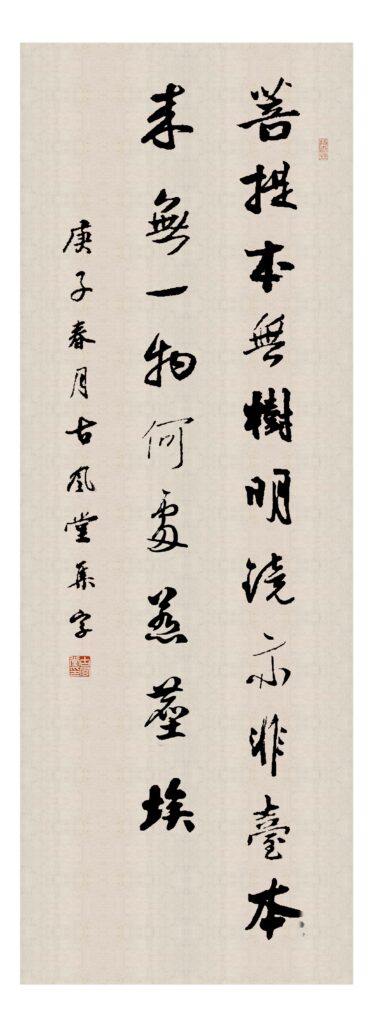 菩提本無樹明鏡亦非臺本
来無一物何處惹塵埃
庚子春月古風堂集字